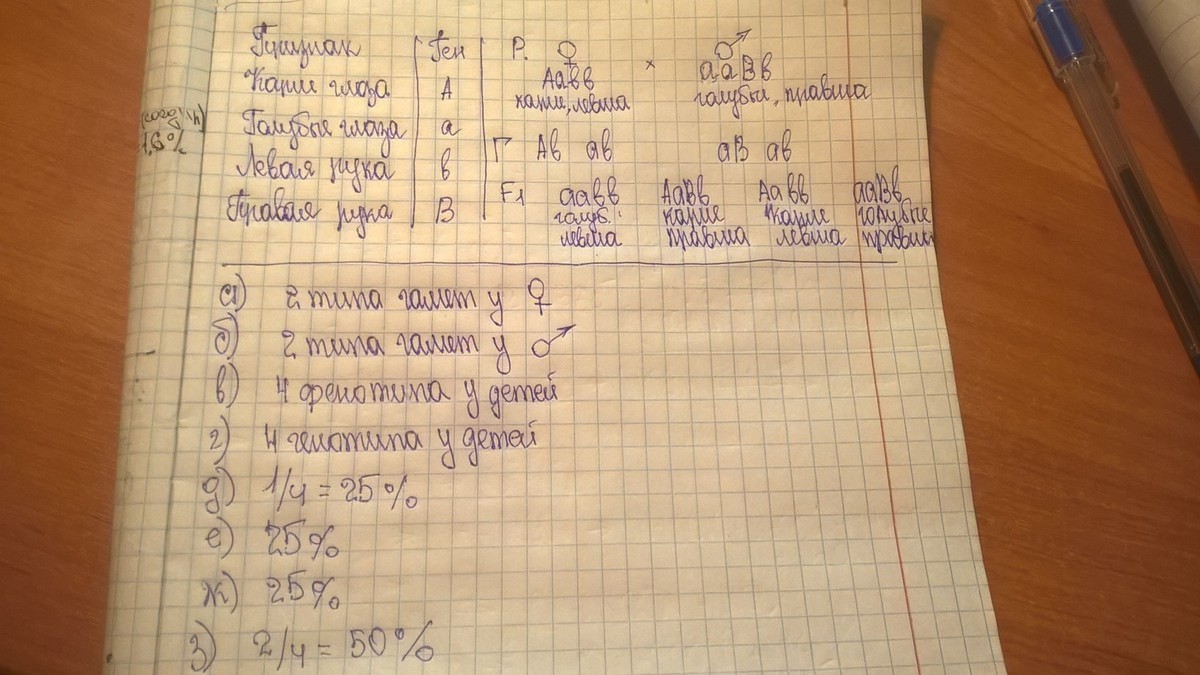 Признак Ген Р. ♀ × ♂
Карие глаза А Аавв ааВв
карие, левша голубые, правша
Голубые глаза а
Г Ав ав аВ ав
Левая рука в
F1 аавв АаВв Аавв ааВв
Правая рука В голуб. карие карие голубые
левша правша левша правша
а) 2 типа гамет у ♀
б) 2 типа гамет у ♂
в) 4 фенотипа у детей
г) 4 генотипа у детей
д) 1/4 = 25%
е) 25%
ж) 25%
з) 2/4 = 50%